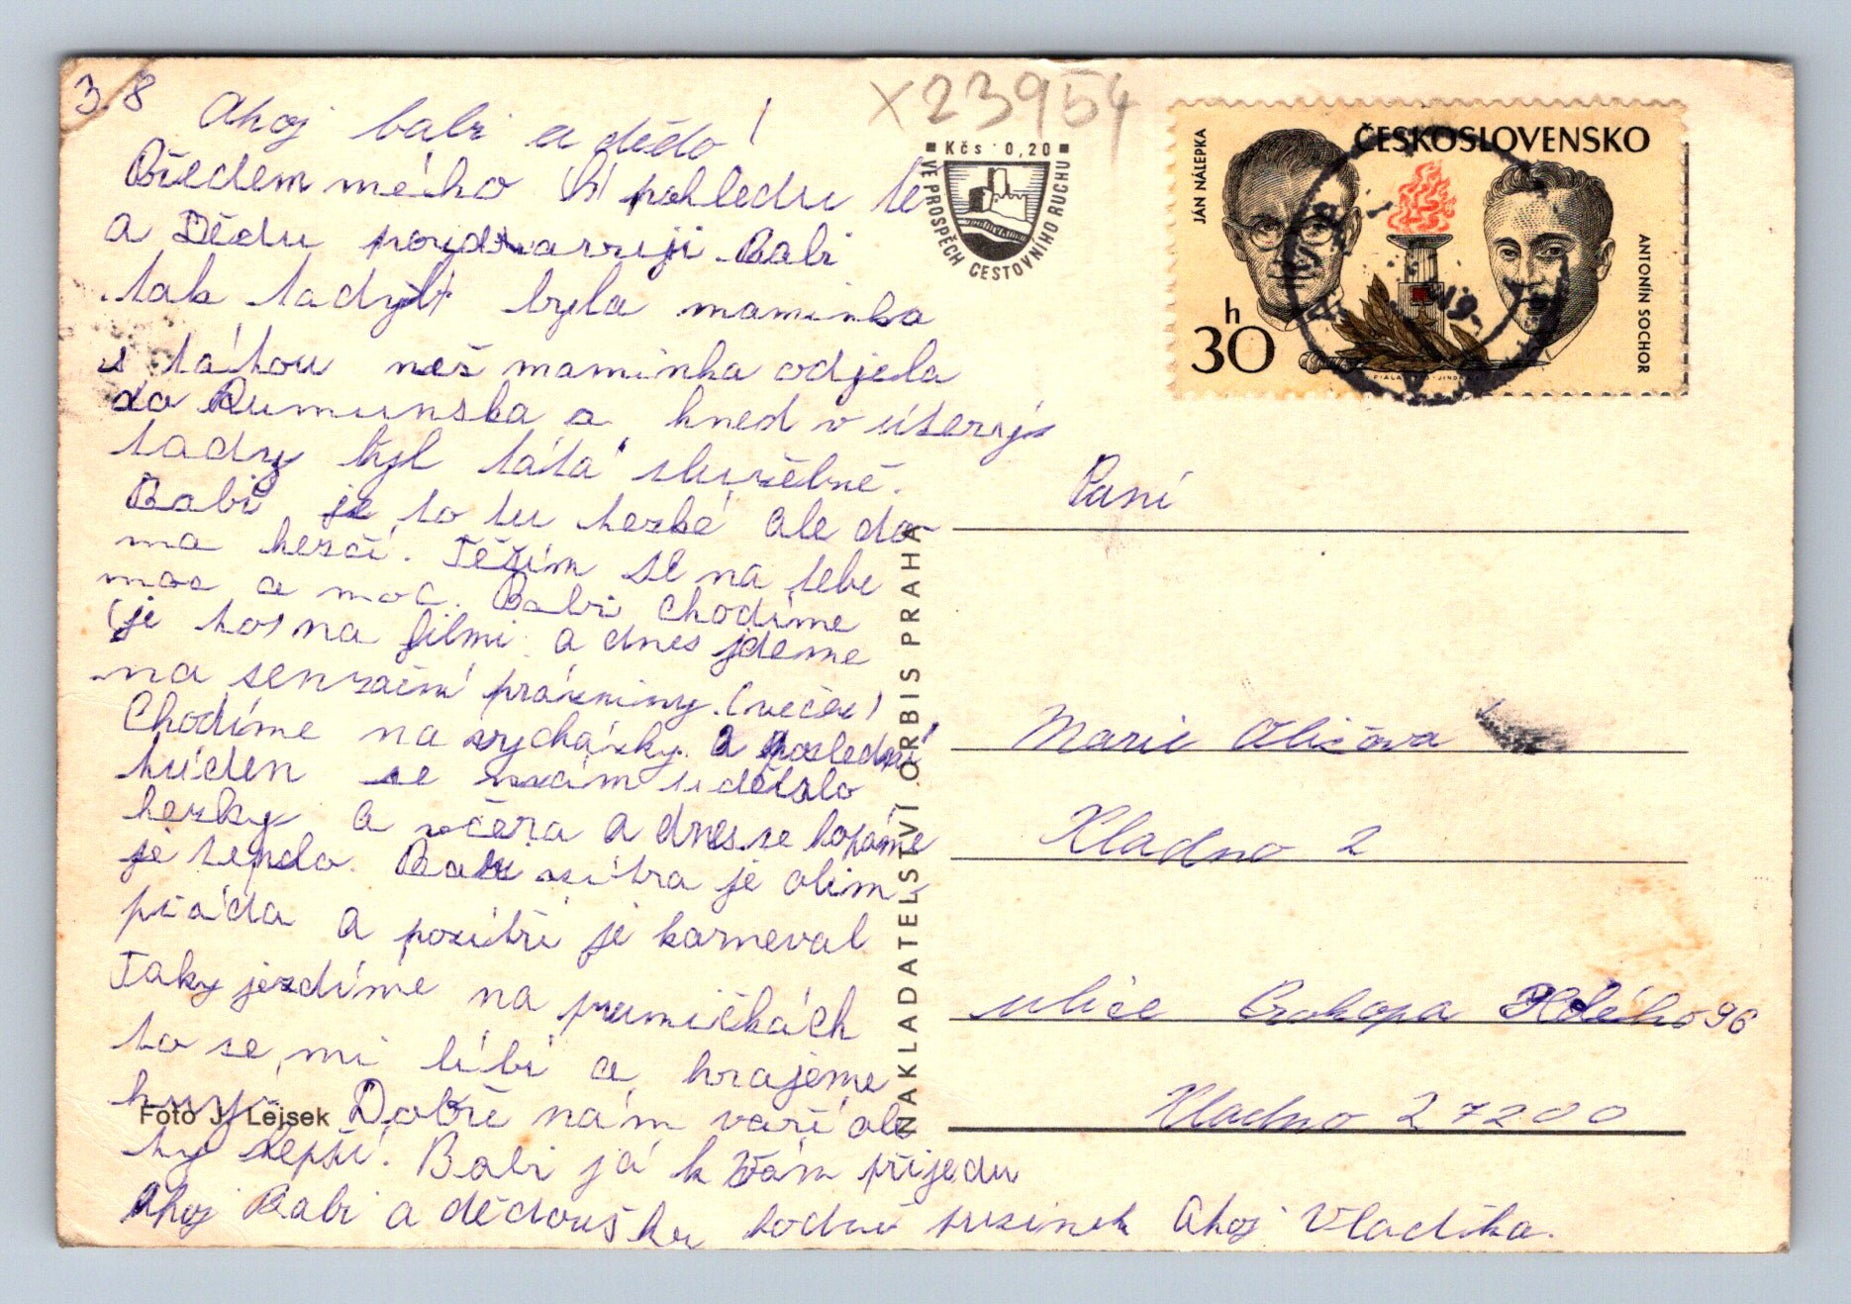 3.8
Ahoj babi a dědo!
X23954
Předem mého pohledu te
a Dědu pozdravuji. Babi
tak tadyt byla maminka
s tátou než maminka odjela
do Rumunska a hned v úterý
tady byl táta služebně.
Babi je to tu hezké ale do-
ma hezčí. Těžím se na tebe
moc a moc. Babi Chodíme
(je to) na filmi. a dnes jdeme
na senzační prázniny. (večer)
Chodíme na vycházky. a poslední
tíden se nám udělalo
hezky a včera a dnes se kopáme
je teplo. Babi zítra je olim-
piáda a pozítří je karneval
Taky jezdíme na pramičkách
to se mi líbí a hrajeme
hry. Dobře nám vaří ale
ty lepší. Babi já k Vám přijedu
Ahoj Babi a dědoušku hodně pusinek Ahoj Vladíka.
Foto J. Lejsek
Kčs 0,20
VE PROSPĚCH CESTOVNÍHO RUCHU
NAKLADATELSTVÍ ORBIS PRAHA
ČESKOSLOVENSKO
JÁN NÁLEPKA
ANTONÍN SOCHOR
30 h
19.
Paní
Marie
Kladno 2
ulice Prokopa Holého 96
Kladno 2 27200